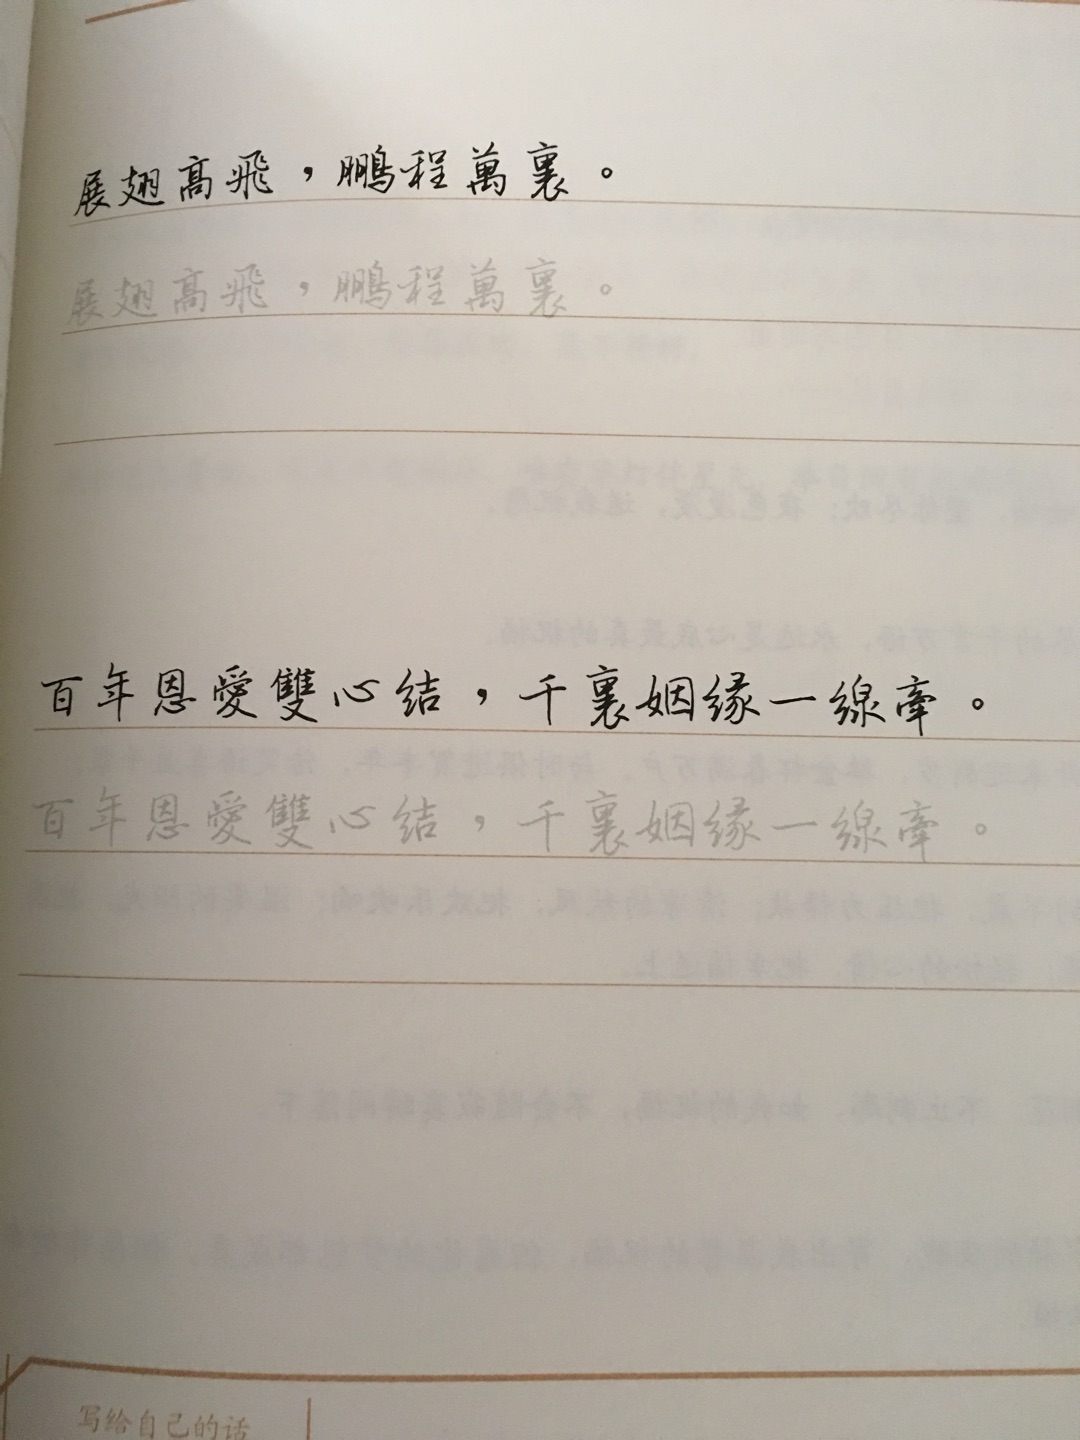 展翅高飛，鵬程萬裏。
展翅高飛，鵬程萬裏。
百年恩愛雙心结，千裏姻緣一線牽。
百年恩愛雙心结，千裏姻緣一線牽。
写给自己的话